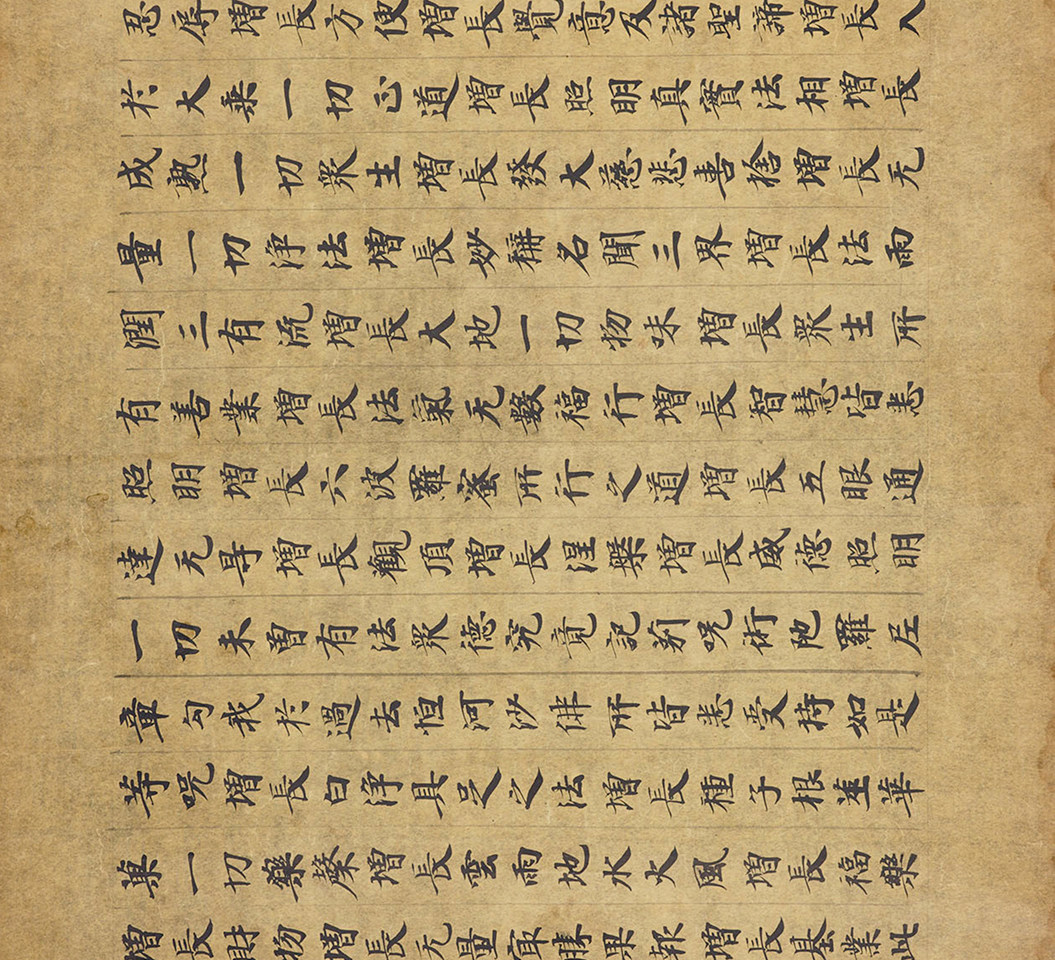 忍辱增長方便增長覺意及諸聖諦增長入
於大乘一切正道增長照明真實法相增長
成熟一切眾生增長發大慈悲喜捨增長无
量一切淨法增長妙稱名聞三界增長法雨
潤三有流增長大地一切物味增長眾生所
有善業增長法氣无數福行增長智慧皆悉
照明增長六波羅蜜所行之道增長五眼通
達无㝵增長觀頂增長涅槃增長威德照明
一切未曾有法眾德究竟記莂呪術陁羅尼
章句我於過去恒河沙佛所皆悉受持如是
等呪增長白淨具足之法增長種子根莖華
菓一切藥馨增長雲雨地水火風增長福樂
增長財物增長无量冣勝果報增長基業此